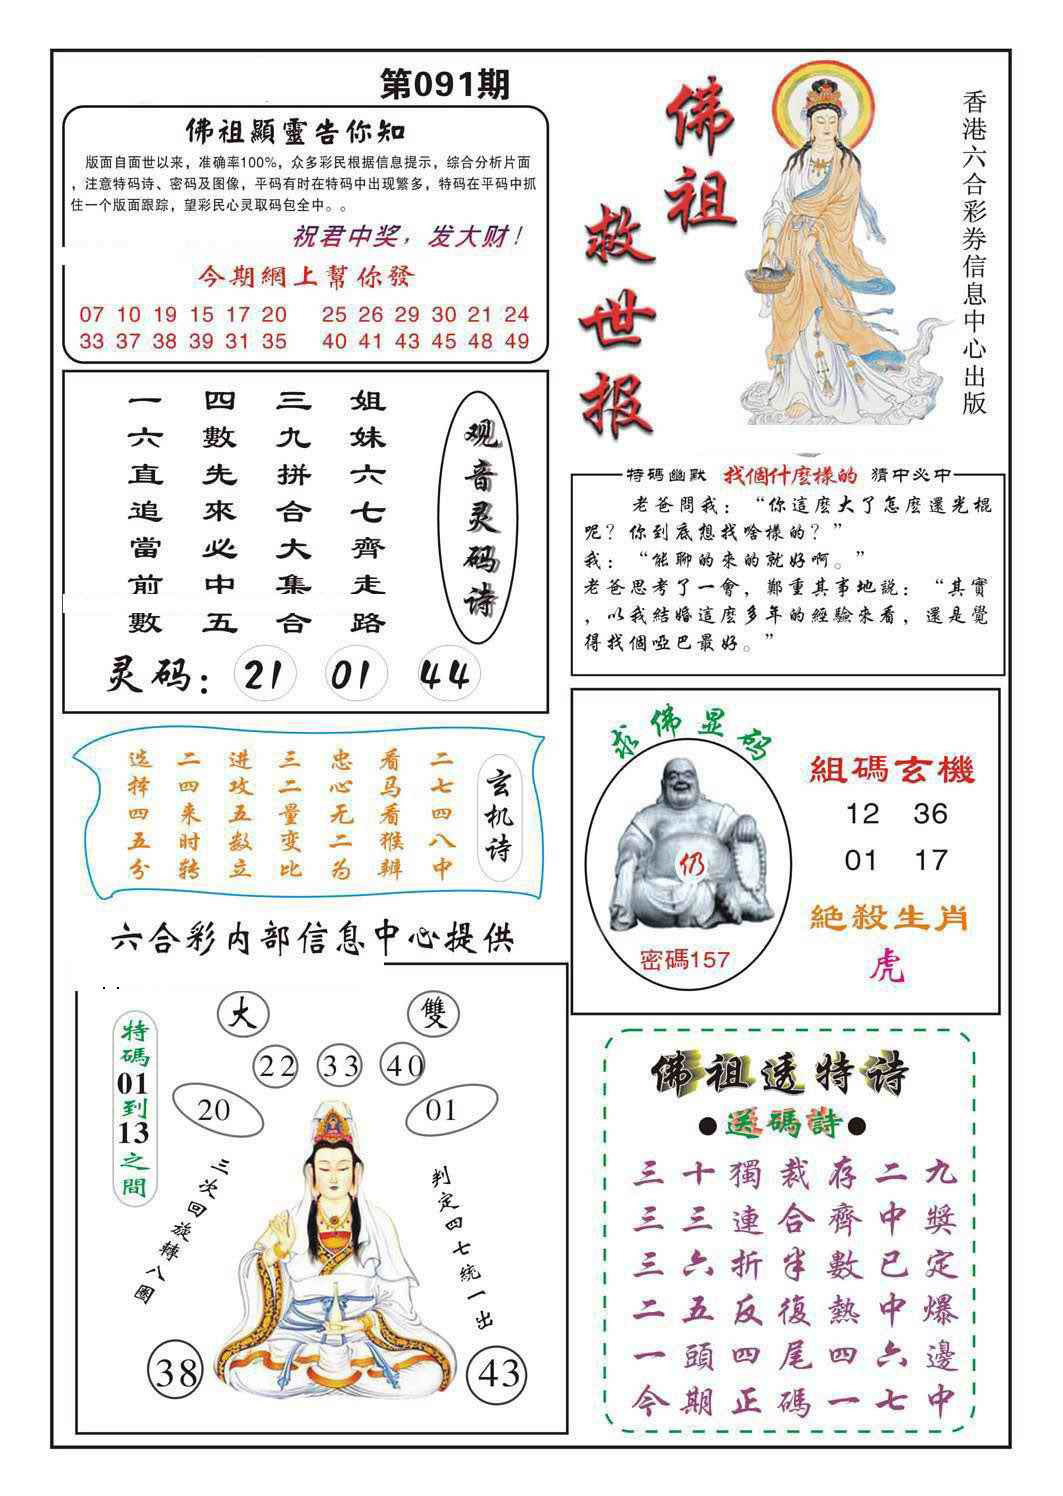 第091期
佛祖顯靈告你知
版面自面世以来，准确率100%，众多彩民根据信息提示，综合分析片面
，注意特码诗、密码及图像，平码有时在特码中出现繁多，特码在平码中抓
住一个版面跟踪，望彩民心灵取码包全中。。
祝君中奖，发大财！
今期網上幫你發
07 10 19 15 17 20 25 26 29 30 21 24
33 37 38 39 31 35 40 41 43 45 48 49
佛祖
救世报
香港六合彩券信息中心出版
观音灵码诗
姐妹六七齊走路
三九拼合大集合
四數先來必中五
一六直追當前數
灵码：21 01 44
特碼幽默 找個什麼樣的 猜中必中
老爸問我：“你這麼大了怎麼還光棍
呢？你到底想找啥樣的？”
我：“能聊的來的就好啊。”
老爸思考了一會，鄭重其事地説：“其實
，以我結婚這麼多年的經驗來看，還是覺
得找個啞巴最好。”
玄机诗
二七四八中
看马看猴辨
忠心无二为
三二量变比
进攻五数立
二四来时转
选择四五分
求佛显码
仍
密碼157
組碼玄機
12 36
01 17
絕殺生肖
虎
六合彩内部信息中心提供
特碼01到13之間
大 雙
22 33 40
20 01
三次回旋轉八圈
判定四七統一出
38 43
佛祖透特诗
●送碼詩●
三十獨裁存二九
三三連合齊中獎
三六折半數已定
二五反復熱中爆
一頭四尾四六邊
今期正碼一七中